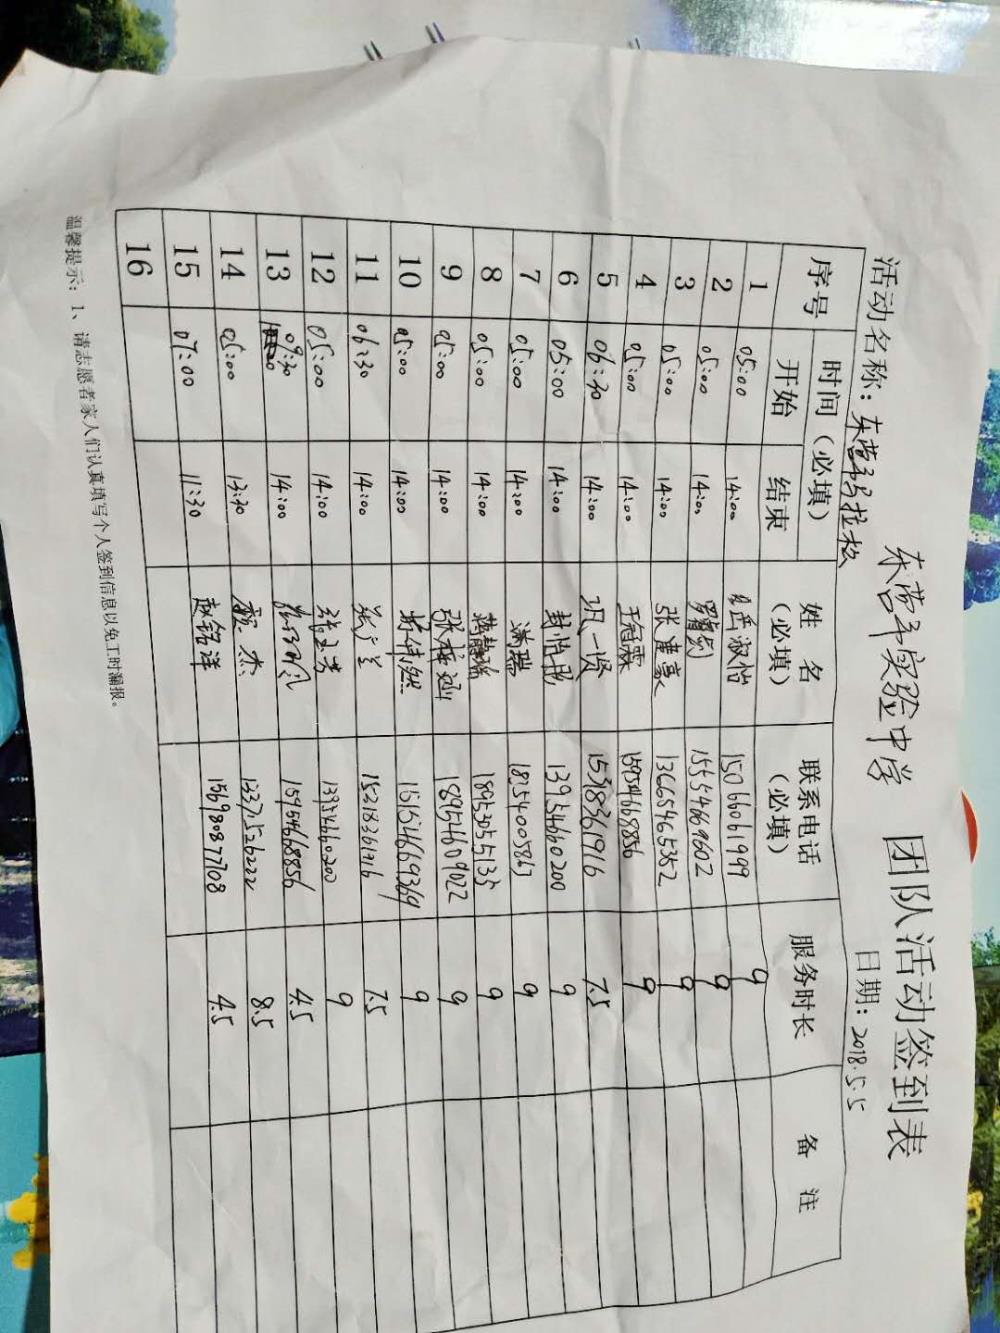 东营市实验中学 团队活动签到表
活动名称：东营市马拉松 日期：2018.5.5
序号 时间（必填） 姓名（必填） 联系电话（必填） 服务时长 备注
开始 结束
1 05:00 14:00 淑怡 15066061999 9
2 05:00 14:00 15554669602 9
3 05:00 14:00 张建豪 13665465352 9
4 05:00 14:00 王冠霖 15954668856 9
5 06:30 14:00 巩一贤 15318361916 7.5
6 05:00 14:00 封怡 13954660200 9
7 05:00 14:00 潇瑞 18254005863 9
8 05:00 14:00 蒋静瑞 18953055135 9
9 05:00 14:00 张 18954609022 9
10 05:00 14:00 15154669369 9
11 06:30 14:00 15318361916 7.5
12 05:00 14:00 13954660200 9
13 09:30 14:00 15954668856 4.5
14 05:00 13:30 杰 13371526222 8.5
15 07:00 11:30 赵铭洋 15698087708 4.5
16
温馨提示：1、请志愿者家人们认真填写个人签到信息以免工时漏报。